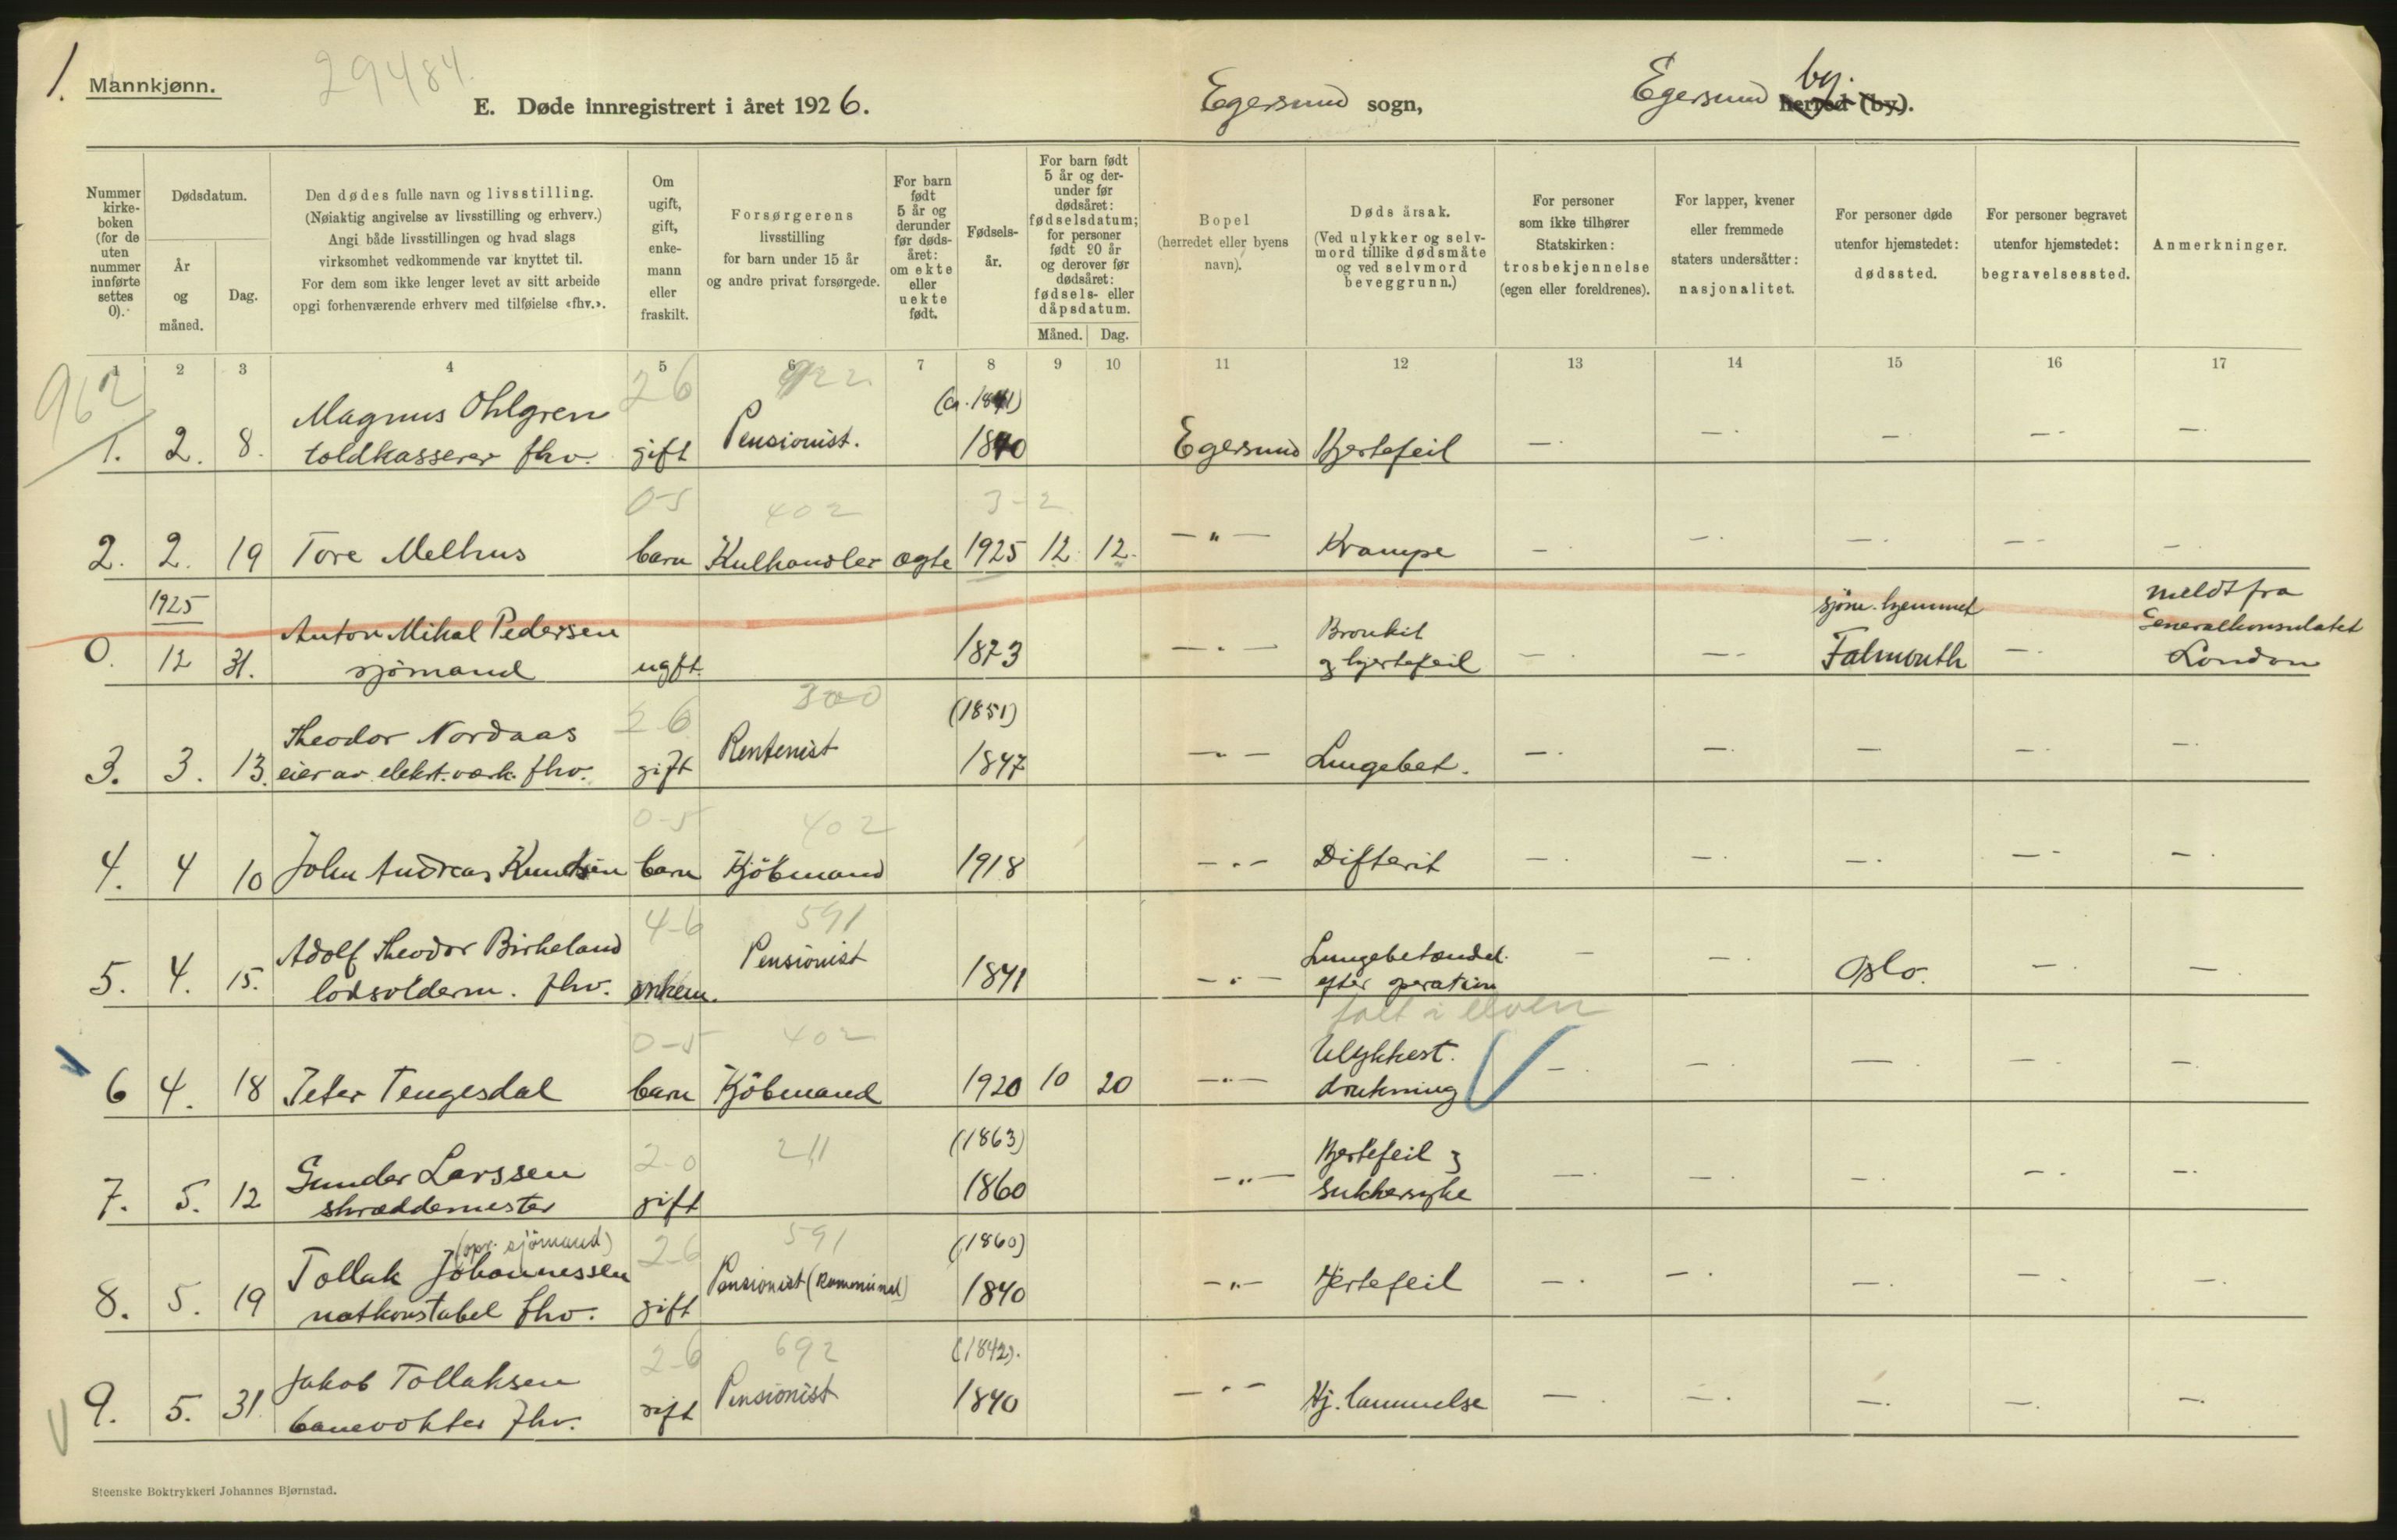 1.
Mannkjønn.
29484.
E. Døde innregistrert i året 1926.
Egersund sogn,
Egersund by. herred (by).
Nummer kirke-boken (for de uten nummer innførte settes 0).
Dødsdatum.
År og måned.
Dag.
Den dødes fulle navn og livsstilling.
(Nøiaktig angivelse av livsstilling og erhverv.)
Angi både livsstillingen og hvad slags
virksomhet vedkommende var knyttet til.
For dem som ikke lenger levet av sitt arbeide
opgi forhenværende erhverv med tilføielse «fhv.».
Om ugift, gift, enke-mann eller fraskilt.
Forsørgerens
livsstilling
for barn under 15 år
og andre privat forsørgede.
For barn født 5 år og derunder før døds-året: om ekte eller uekte født.
Fødsels-år.
For barn født 5 år og der-under før dødsåret: fødselsdatum; for personer født 90 år og derover før dødsåret: fødsels- eller dåpsdatum.
Måned. Dag.
Bopel
(herredet eller byens
navn).
Døds årsak.
(Ved ulykker og selv-
mord tillike dødsmåte
og ved selvmord
beveggrunn.)
For personer
som ikke tilhører
Statskirken:
trosbekjennelse
(egen eller foreldrenes).
For lapper, kvener
eller fremmede
staters undersåtter:
nasjonalitet.
For personer døde
utenfor hjemstedet:
dødssted.
For personer begravet
utenfor hjemstedet:
begravelsessted.
Anmerkninger.
1 2 3 4 5 6 7 8 9 10 11 12 13 14 15 16 17
962
26 922
Magnus Ohlgren (ca. 1841)
1. 2. 8. toldkasserer fhv. gift Pensionist. 1840 Egersund Hjertefeil — — — — —
0-5 402 3-2
2. 2. 19 Tore Melhus barn Kulhandler ægte 1925 12 12. — " — Krampe — — — — —
1925 Anton Mihal Pedersen Bronkit sjøm. hjemmet meldt fra Generalkonsulatet
0. 12 31. sjömand ugft. 1873 — " — og hjertefeil — — Falmouth — London
2-6 300 (1851)
Theodor Nordaas
3. 3. 13. eier av elekt. værk. fhv. gift Rentenist 1847 — " — Lungebet. — — — — —
0-5 402
4. 4 10 John Andreas Knudsen barn Kjöbmand 1918 — " — Difterit — — — — —
4-6 591
Adolf Theodor Birkeland Pensionist Lungebetændel.
5. 4. 15. lodsolderm. fhv. enkem. 1841 — " — efter operation — — Oslo. — —
0-5 402 falt i elven
Ulykkest.
6 4. 18 Peter Tengesdal barn Kjöbmand 1920 10 20 — " — drukning — — — — —
2-0 211 (1863)
Gunder Larssen Hjertefeil og
7. 5. 12 skræddermester gift 1860 — " — Sukkersyke — — — — —
(opr. sjömand) 2-6 591 (1860)
Tollak Johannessen Pensionist (Kommunal)
8. 5. 19 natkonstabel fhv. gift 1840 — " — Hjertefeil — — — — —
2-6 692 (1842).
Jakob Tollaksen Pensionist
9. 5. 31 banevokter fhv. gift 1840 — " — Hj. lammelse — — — — —
Steenske Boktrykkeri Johannes Bjørnstad.